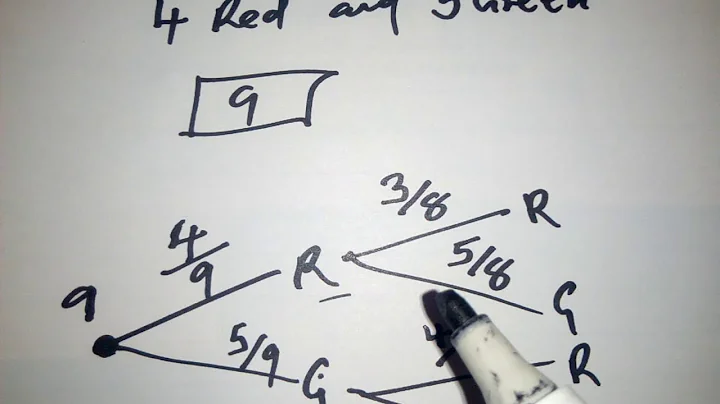 4 Red and 5 Green
9
3/8 R
4/9 R 5/8
9 G
5/9 G R